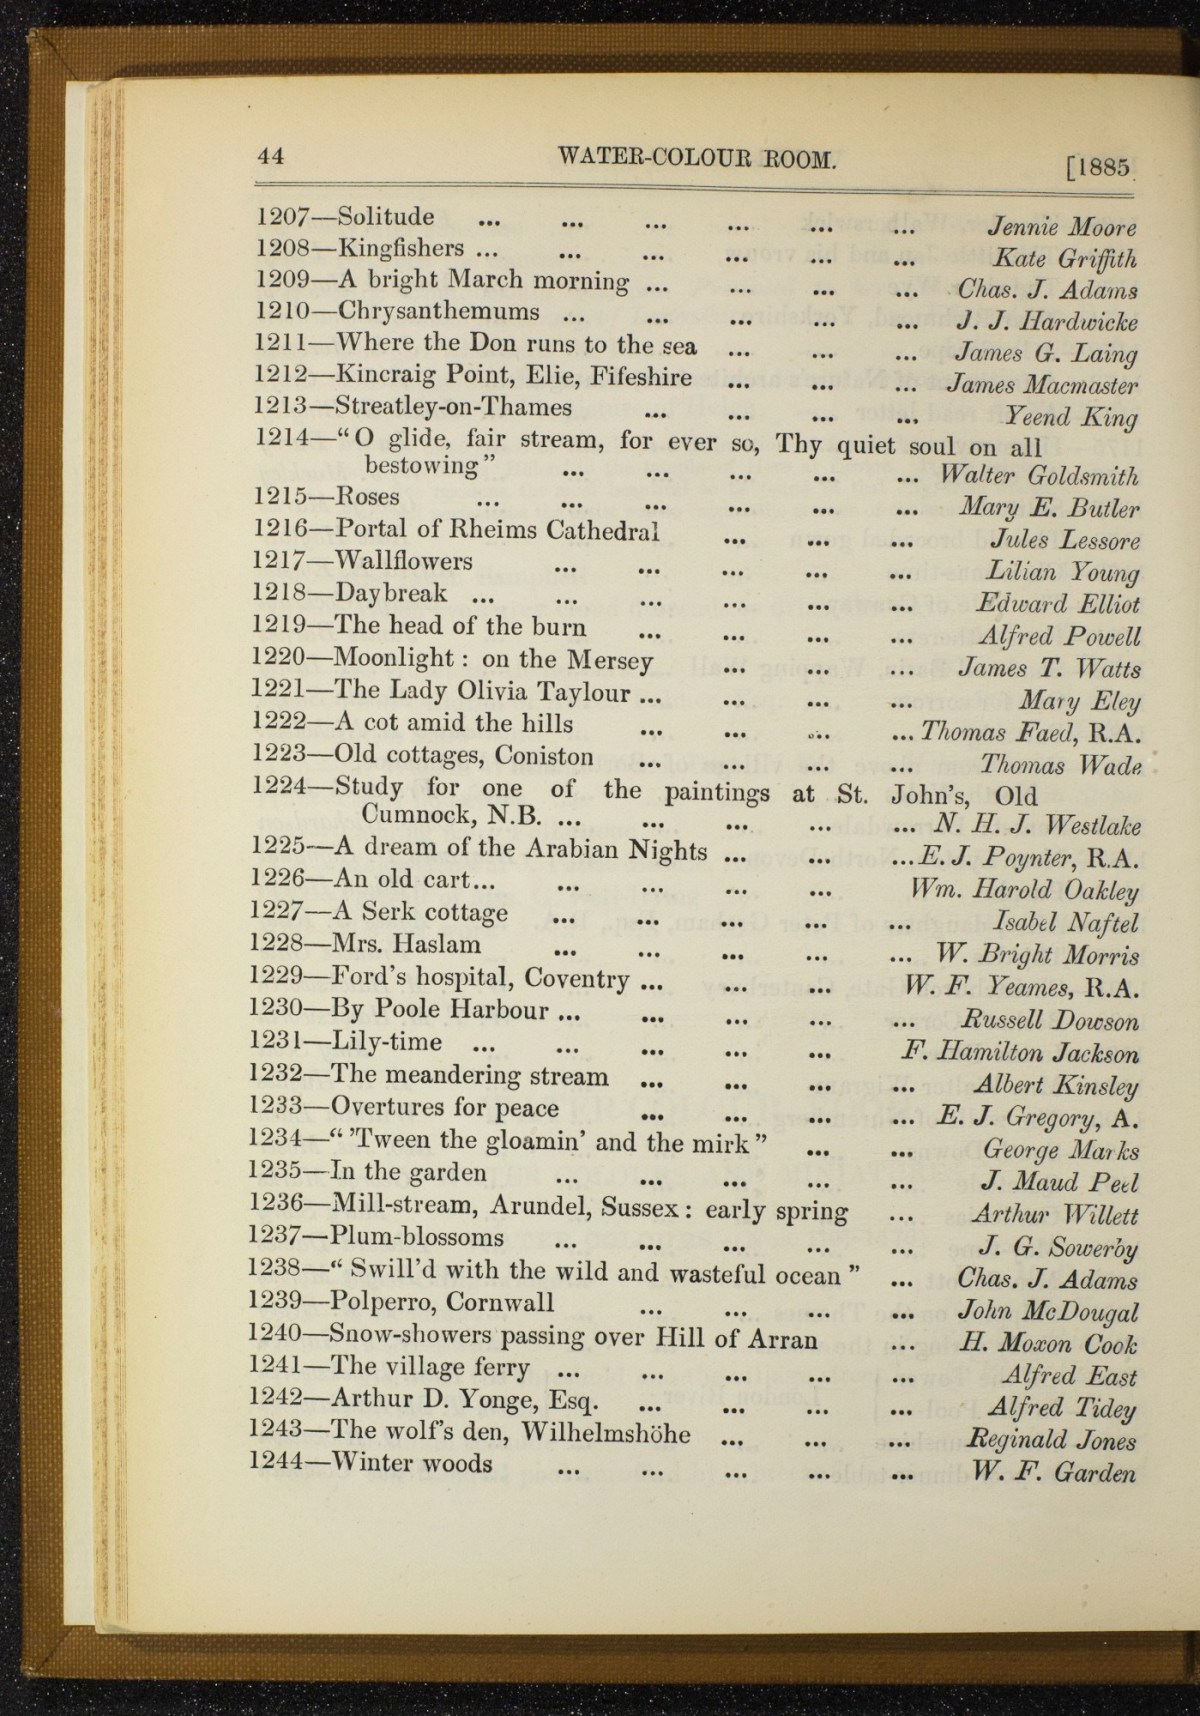 44 WATER-COLOUR ROOM. [1885
1207—Solitude ... ... ... ... ... ... Jennie Moore
1208—Kingfishers ... ... ... ... ... ... Kate Griffith
1209—A bright March morning ... ... ... ... Chas. J. Adams
1210—Chrysanthemums ... ... ... ... ... J. J. Hardwicke
1211—Where the Don runs to the sea ... ... ... James G. Laing
1212—Kincraig Point, Elie, Fifeshire ... ... ... James Macmaster
1213—Streatley-on-Thames ... ... ... ... Yeend King
1214—“O glide, fair stream, for ever so, Thy quiet soul on all
bestowing” ... ... ... ... ... Walter Goldsmith
1215—Roses ... ... ... ... ... ... Mary E. Butler
1216—Portal of Rheims Cathedral ... ... ... Jules Lessore
1217—Wallflowers ... ... ... ... ... Lilian Young
1218—Daybreak ... ... ... ... ... ... Edward Elliot
1219—The head of the burn ... ... ... ... Alfred Powell
1220—Moonlight: on the Mersey ... ... ... James T. Watts
1221—The Lady Olivia Taylour ... ... ... ... Mary Eley
1222—A cot amid the hills ... ... ... ... Thomas Faed, R.A.
1223—Old cottages, Coniston ... ... ... ... Thomas Wade
1224—Study for one of the paintings at St. John's, Old
Cumnock, N.B. ... ... ... ... ... N. H. J. Westlake
1225—A dream of the Arabian Nights ... ... ... E. J. Poynter, R.A.
1226—An old cart... ... ... ... ... Wm. Harold Oakley
1227—A Serk cottage ... ... ... ... ... Isabel Naftel
1228—Mrs. Haslam ... ... ... ... ... W. Bright Morris
1229—Ford's hospital, Coventry ... ... ... W. F. Yeames, R.A.
1230—By Poole Harbour ... ... ... ... ... Russell Dowson
1231—Lily-time ... ... ... ... ... F. Hamilton Jackson
1232—The meandering stream ... ... ... ... Albert Kinsley
1233—Overtures for peace ... ... ... ... E. J. Gregory, A.
1234—“'Tween the gloamin' and the mirk” ... ... George Marks
1235—In the garden ... ... ... ... ... J. Maud Peel
1236—Mill-stream, Arundel, Sussex: early spring ... Arthur Willett
1237—Plum-blossoms ... ... ... ... ... J. G. Sowerby
1238—“Swill'd with the wild and wasteful ocean” ... Chas. J. Adams
1239—Polperro, Cornwall ... ... ... ... John McDougal
1240—Snow-showers passing over Hill of Arran ... H. Moxon Cook
1241—The village ferry ... ... ... ... ... Alfred East
1242—Arthur D. Yonge, Esq. ... ... ... ... Alfred Tidey
1243—The wolf's den, Wilhelmshöhe ... ... ... Reginald Jones
1244—Winter woods ... ... ... ... ... W. F. Garden